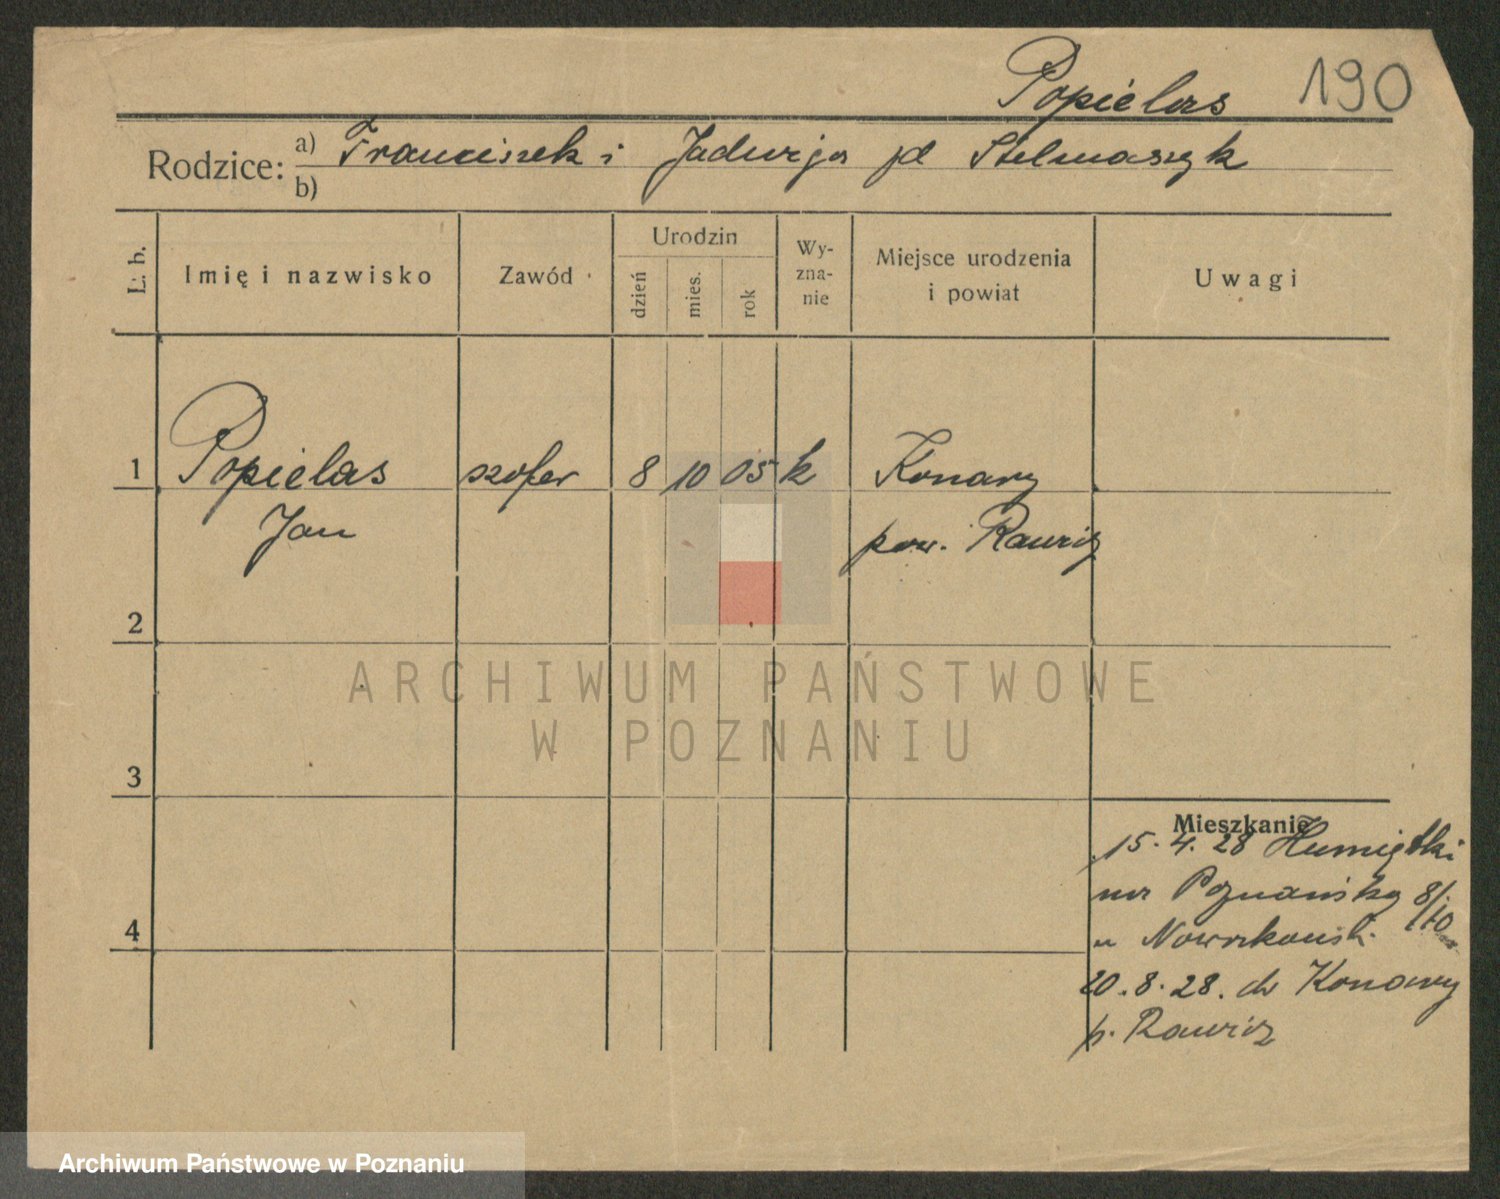 Popielas 190
Rodzice: a) Franciszek i Jadwiga zd Stelmaszyk
b)
L. b.
Imię i nazwisko
Zawód
Urodzin
dzień
mies.
rok
Wy-
zna-
nie
Miejsce urodzenia
i powiat
Uwagi
1 Popielas szofer 8 10 05 k Konary
Jan pow. Rawicz
2
ARCHIWUM PAŃSTWOWE
W POZNANIU
3
Mieszkanie
15.4.28
na Poznańska 8/10
4
u
20.8.28. do Konary
p. Rawicz
Archiwum Państwowe w Poznaniu